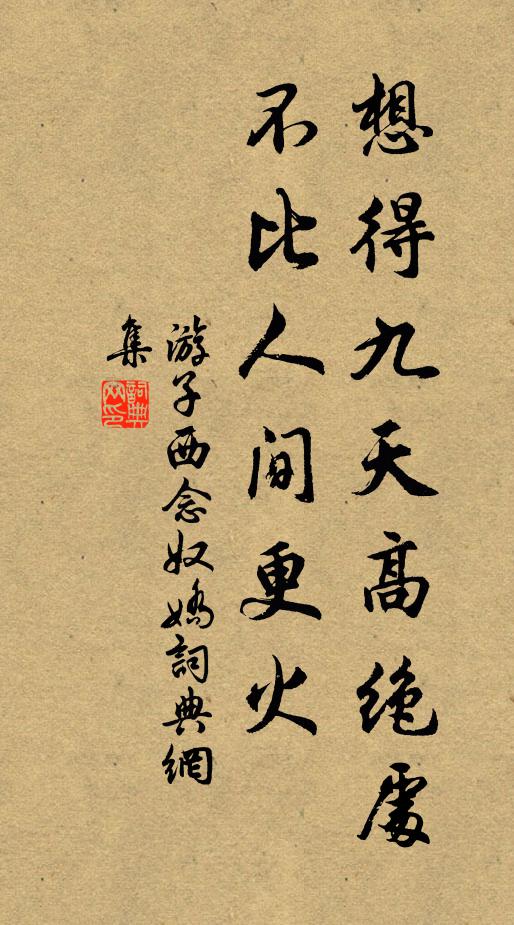 想得九天高绝處
不比人间更火
游子西念奴嬌詞典網
集
詞典
网印